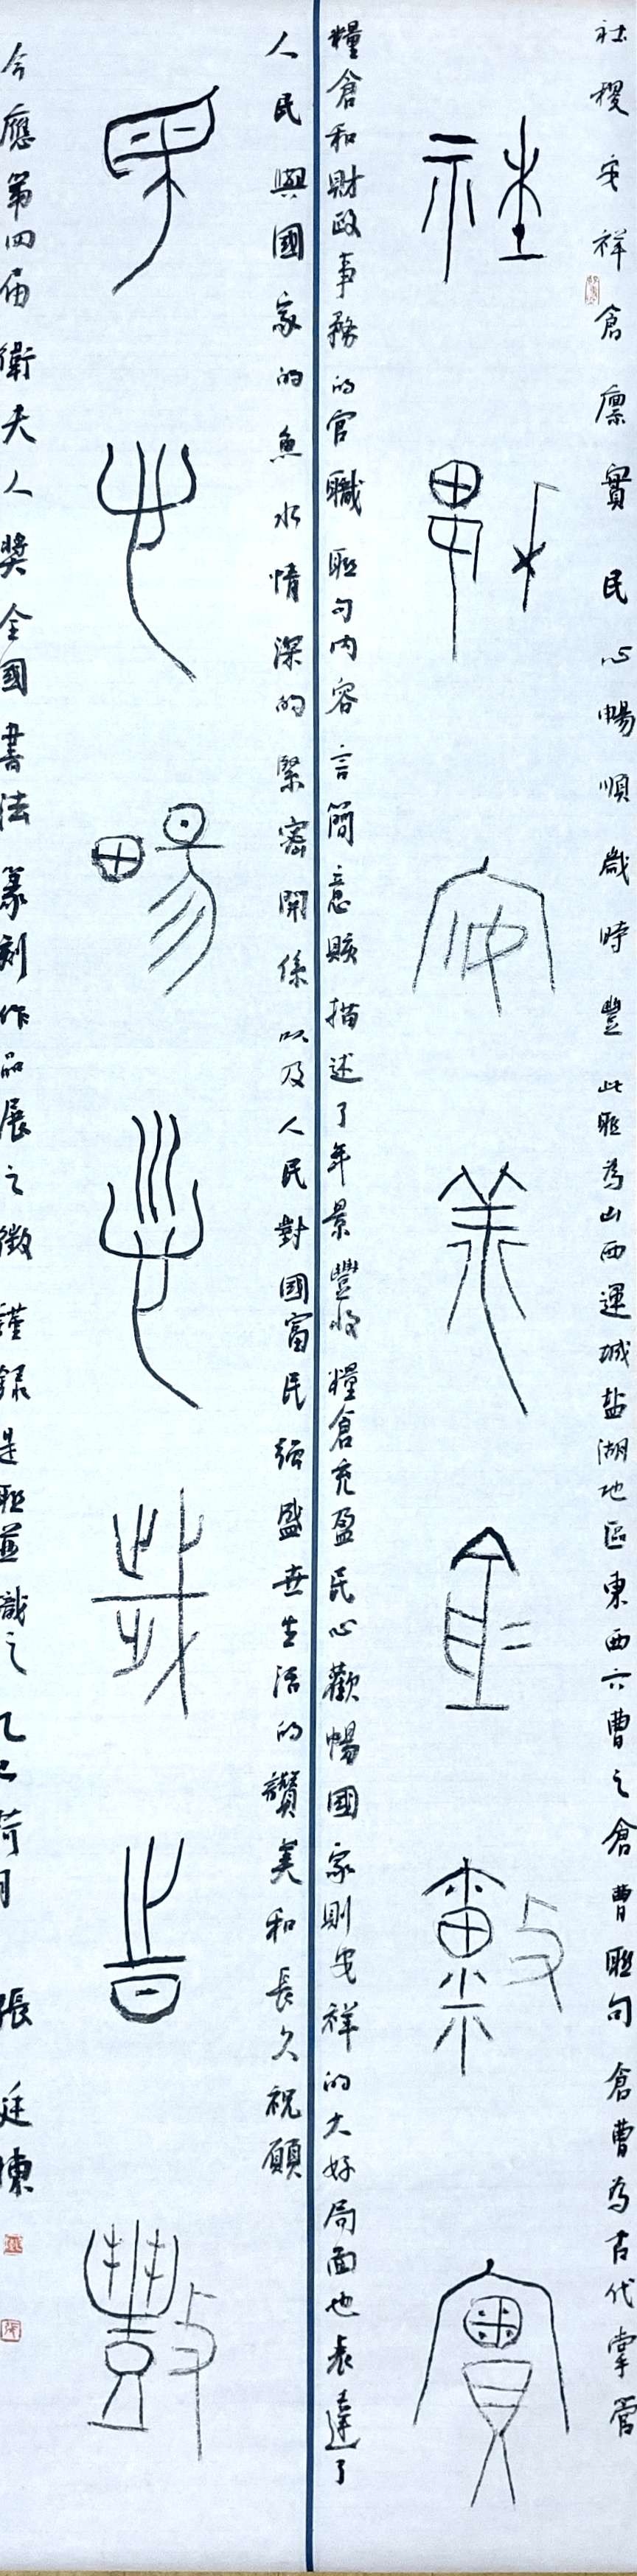 社稷安祥倉廩實民心暢順歲時豐此聯為山西運城盐湖地區東西六曹之倉曹聯句倉曹為古代掌管
社稷安祥倉廩實
糧倉和財政事務的官職聯句内容言簡意賅描述了年景豐收糧倉充盈民心歡暢國家則安祥的大好局面也表達了
人民與國家的魚水情深的緊密關係以及人民對國富民強盛世生活的讚美和長久祝願
民心暢順歲時豐
今應第四届衛夫人獎全國書法篆刻作品展之徵謹録是聯並識之乙巳荷月張廷